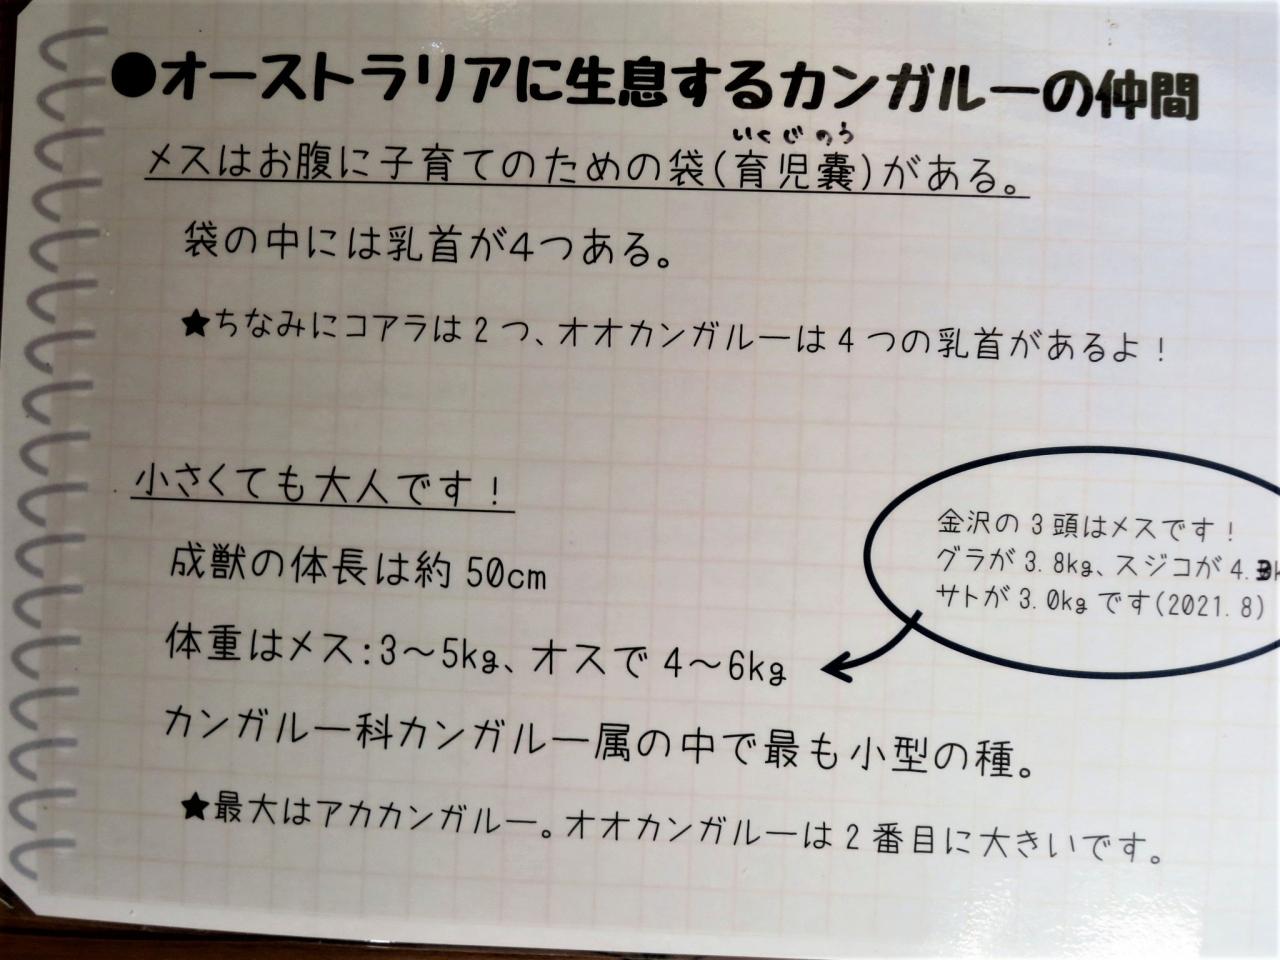 ●オーストラリアに生息するカンガルーの仲間
いくじのう
メスはお腹に子育てのための袋(育児嚢)がある。
袋の中には乳首が4つある。
★ちなみにコアラは2つ、オオカンガルーは4つの乳首があるよ！
小さくても大人です！
成獣の体長は約50cm
体重はメス:3～5kg、オスで4～6kg
カンガルー科カンガルー属の中で最も小型の種。
★最大はアカカンガルー。オオカンガルーは2番目に大きいです。
金沢の3頭はメスです！
グラが3.8kg、スジコが4.3k
サトが3.0kgです(2021.8)